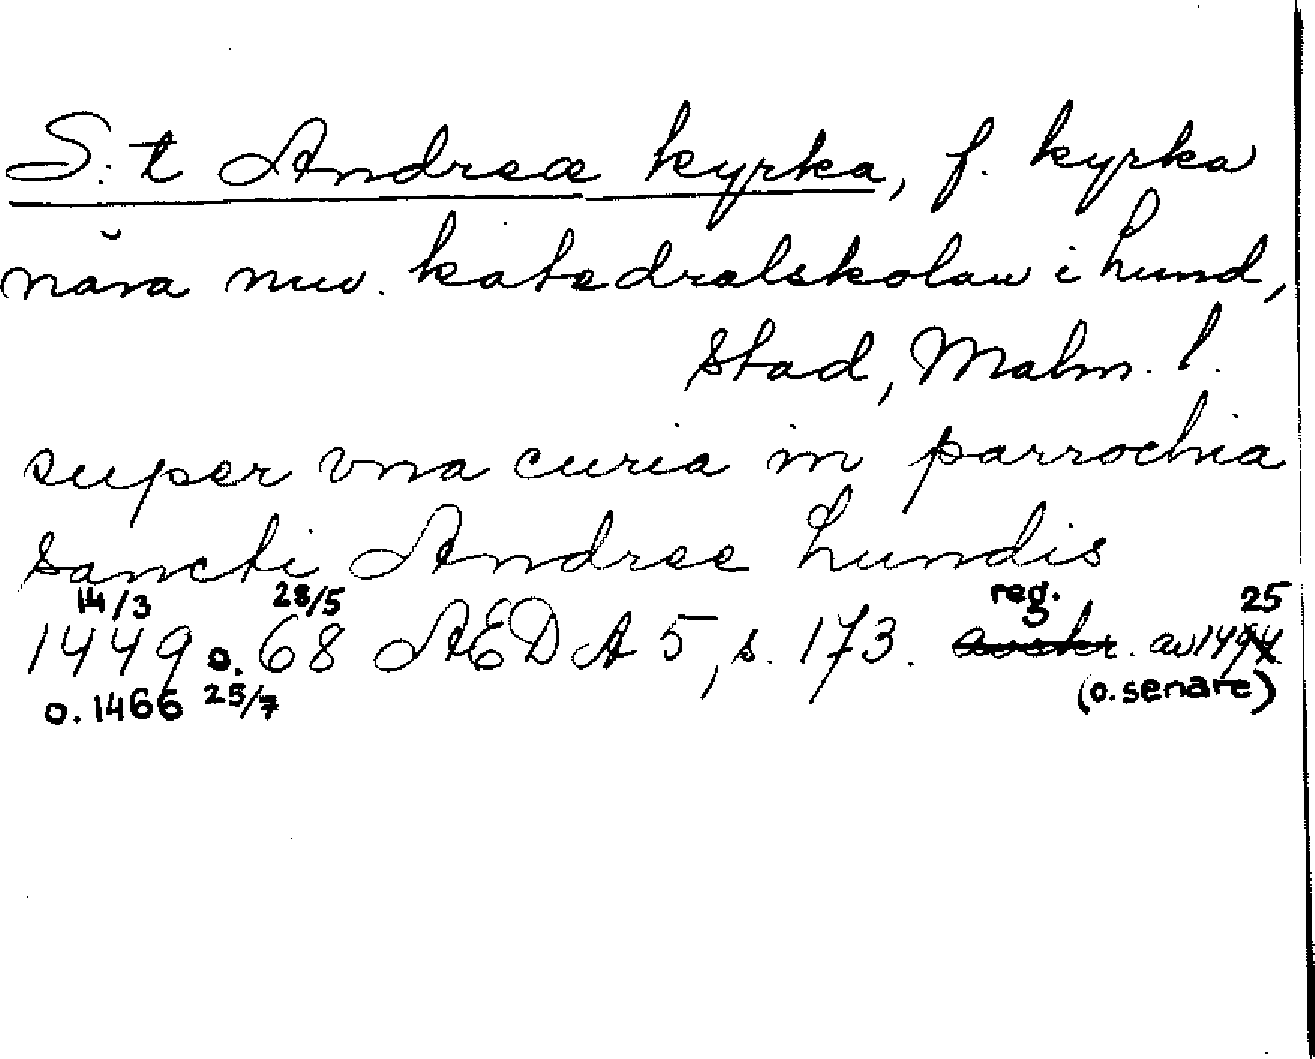 S:t Andreæ kyrka, f. kyrka
nära nuv. katedralskolan i Lund,
stad, Malm. l.
super vna curia in parrochia
sancti Andree Lundis
14/3 28/5 reg. 25
1449 o. 68 ÆDA 5, s. 173. avskr. av 1494
o. 1466 25/7 (o. senare)